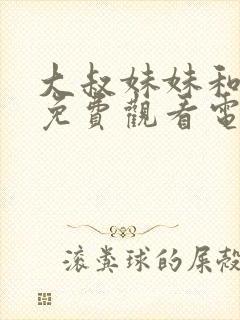 大叔妹妹和
免費觀看電
滚粪球的屎殼